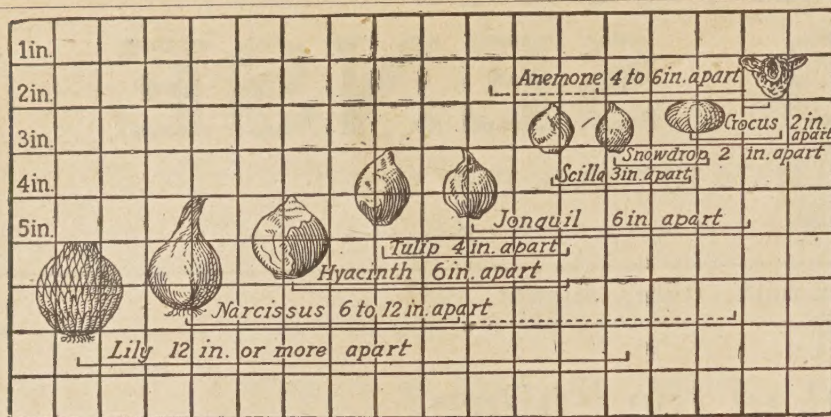 1in.
Anemone 4 to 6in. apart
2in.
Crocus 2in. apart
3in.
Snowdrop 2 in. apart
Scilla 3in. apart
4in.
5in.
Jonquil 6in apart
Tulip 4 in. apart
Hyacinth 6in. apart
Narcissus 6 to 12 in. apart
Lily 12 in. or more apart